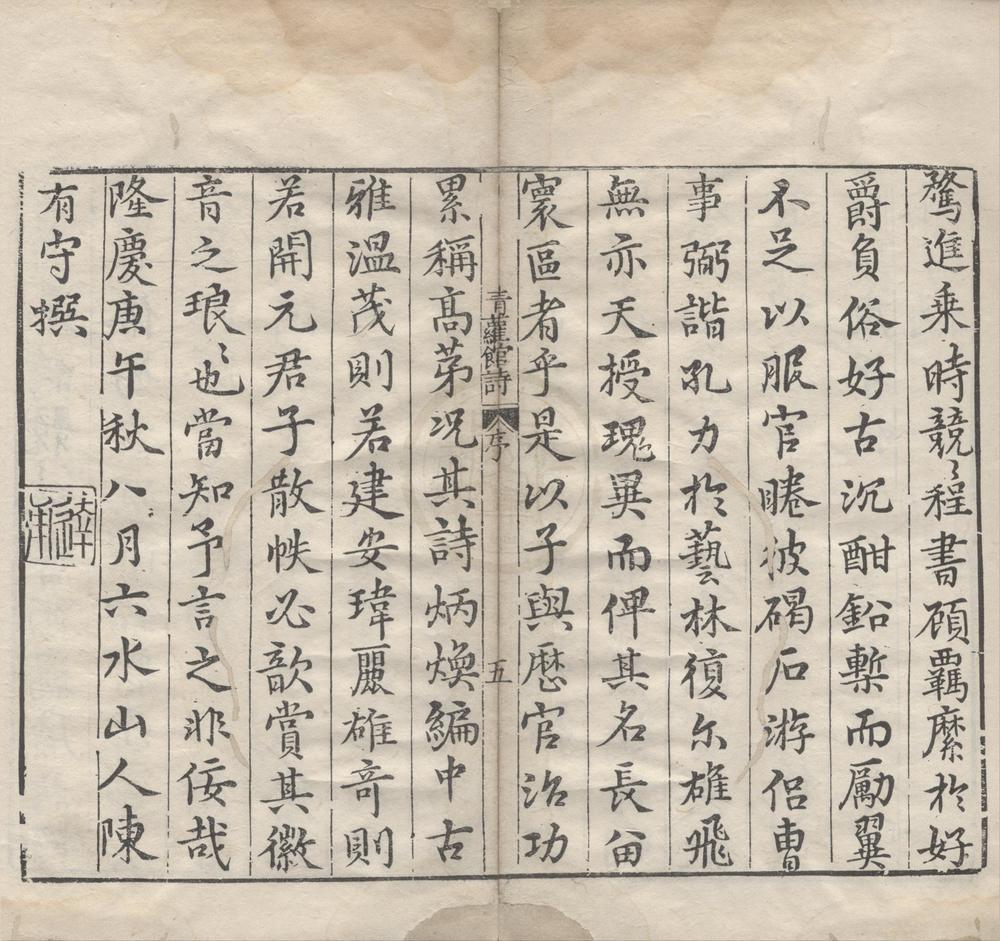 騖進乘時競〻程書頋羈縻於好
爵負俗好古沉酣鉛槧而勵翼
不足以服官睠彼碣石游侣曹
事弼諧孔力於藝林復尒雄飛
無亦天授瑰異而俾其名長留
寰區者乎是以子與歷官治功
青蘿館詩 序 五
累稱髙苐况其詩炳煥編中古
雅溫茂則若建安瑋麗雄竒則
若開元君子散帙必歆賞其徽
音之琅〻也當知予言之非佞哉
隆慶庚午秋八月六水山人陳
有守撰